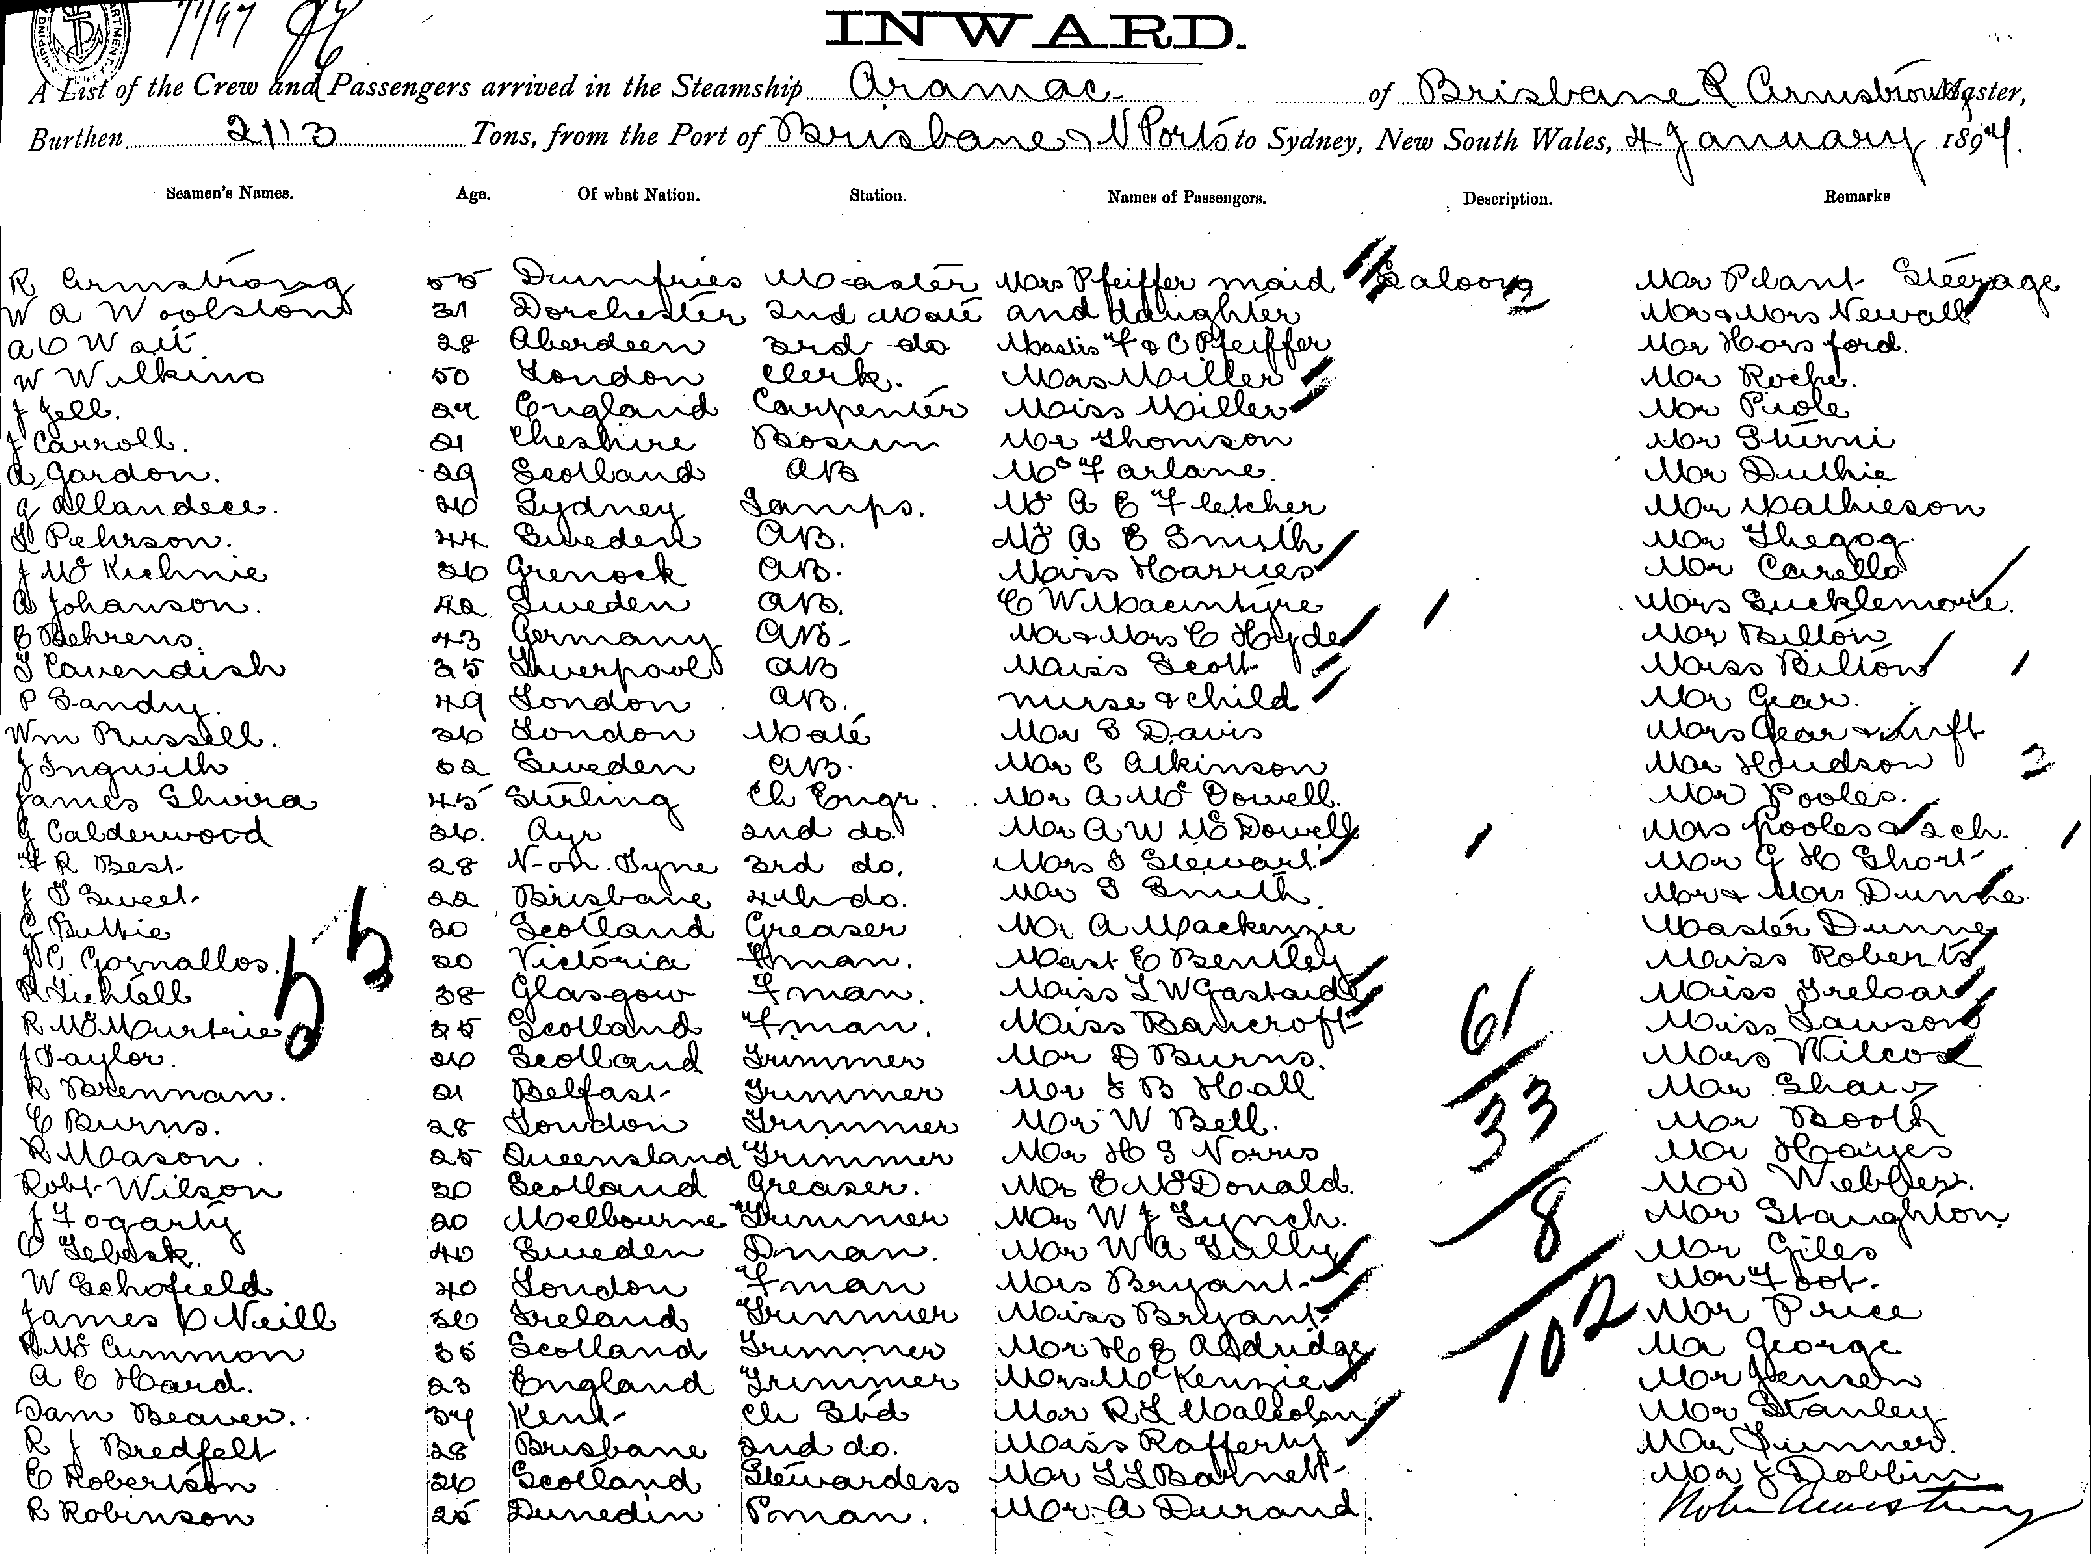 INWARD.
A List of the Crew and Passengers arrived in the Steamship Aramac of Brisbane R Armstrong Master,
Burthen 2113 Tons, from the Port of Brisbane & N Ports to Sydney, New South Wales, 4 January 1897.
Seamen's Names. Age. Of what Nation. Station. Names of Passengers. Description. Remarks
R Armstrong 55 Dumfries Master Mrs Pfeiffer maid Saloon Mr Plant Steerage
W A Woolston 31 Dorchester 2nd Mate and daughter Mr & Mrs Newall
A C Wait 28 Aberdeen 3rd do F & C Pfeiffer Mr Horsford.
W Wilkins 50 London Clerk. Mrs Miller Mr Roche.
J Jell. England Carpenter Miss Miller Mr Poole
J Carroll. 21 Cheshire Bosun Mr Thomson Mr
A Gordon. 29 Scotland AB Mc Farlane. Mr Duthie
G Sydney Lamps. Mr A E Fletcher Mr Mathieson
Pehrson. 44 Sweden AB. Mr A E Smith Mr Thegog
J McKechnie 36 Grenock AB. Miss Harries Mr Carello
A Johanson. 42 Sweden AB. C W Macintyre Mrs Sucklemore.
C Behrens. 43 Germany AB. Mr & Mrs C Hyde Mr Bilton
T Cavendish 35 Liverpool AB Miss Scott Miss Bilton
P Sandry. 49 London AB. nurse & child Mr Gear.
Wm Russell. 36 London Mate Mr S Davis Mrs Gear & Inft
J Ingwith 52 Sweden AB. Mr C Atkinson Mr Hudson 2
James Shirra 45 Stirling Ch Engr. Mr A McDowell. Mr Pooles.
G Calderwood 36. Ayr 2nd do. Mr A W McDowell Mrs Pooles & 2 ch.
F R Best 28 N-on-Tyne 3rd do. Mrs S Stewart Mr G H Short
J T Sweet 22 Brisbane 4th do. Mr S Smith. Mr & Mrs Dunne.
G Buttie 30 Scotland Greaser Mr A Mackenzie Master Dunne
55
Gornallos. 30 Victoria Fman. Mast E Bentley Miss Roberts
38 Glasgow Fman. Miss L W Gastaide Miss Treloar
R McMurtrie 35 Scotland Fman. Miss Bancroft 61 Miss Lawson
J Taylor. 26 Scotland Trimmer Mr D Burns. Mrs Wilcox
R Brennan. 21 Belfast Trimmer Mr J B Hall 33 Mr Shaw
C Burns. 28 London Trimmer Mr W Bell. Mr Booth
R Mason. 25 Queensland Trimmer Mr H S Norris Mr Hayes
Robt Wilson 30 Scotland Greaser. Mr C McDonald. 8 Mr Webber.
J Fogarty 20 Melbourne Trimmer Mr W J Lynch. Mr Staughton
C 40 Sweden Dman. Mr W A Tully Mr Giles
W Schofield 40 London Fman Mrs Bryant 102 Mr Foot.
James O Neill 36 Ireland Trimmer Miss Bryant Mr Price
R McCummon 35 Scotland Trimmer Mr H E Aldridge Mr George
A E Hard. 23 England Trimmer Mrs McKenzie Mr Jensen
Sam Beaver. 34 Kent Ch Std Mr R L Malcolm Mr Stanley
R J Bredfelt 28 Brisbane 2nd do. Miss Rafferty Mr
E Robertson 26 Scotland Stewardess Mr L L Barnett Mr J Dobbin
R Robinson 25 Dunedin Pman. Mr A Durand.